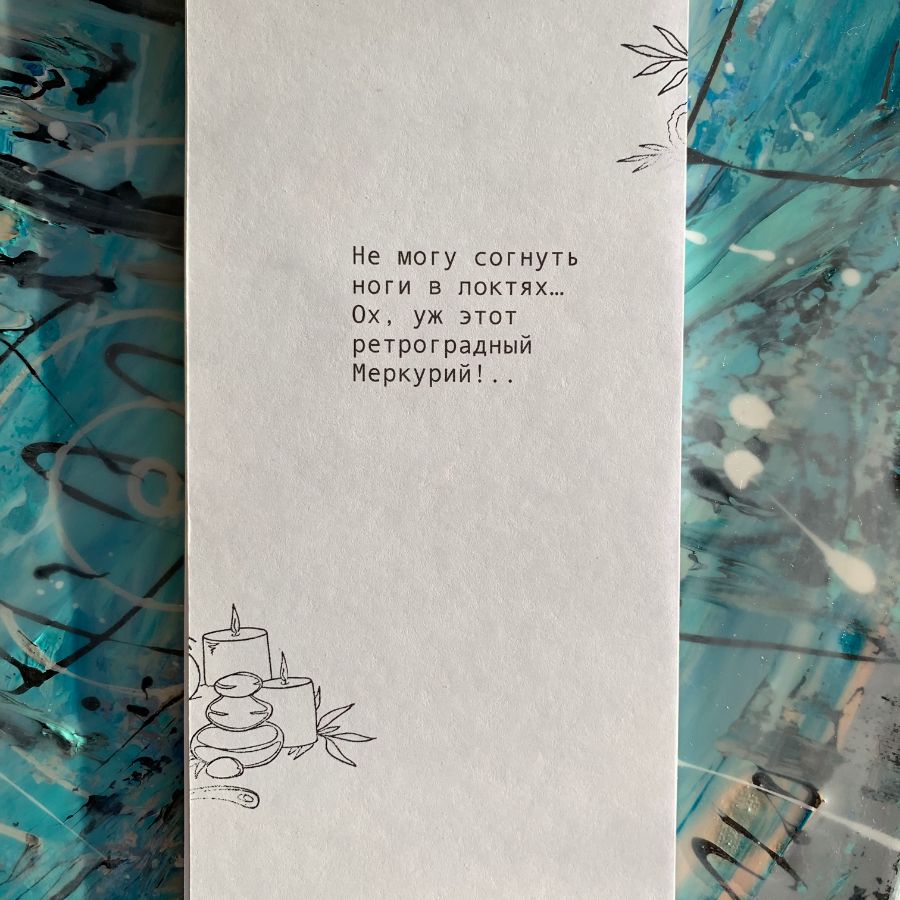 Не могу согнуть
ноги в локтях…
Ох, уж этот
ретроградный
Меркурий!..